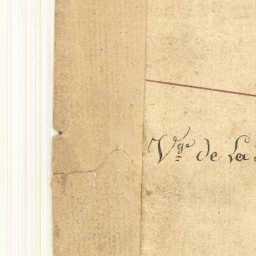 Vge de La